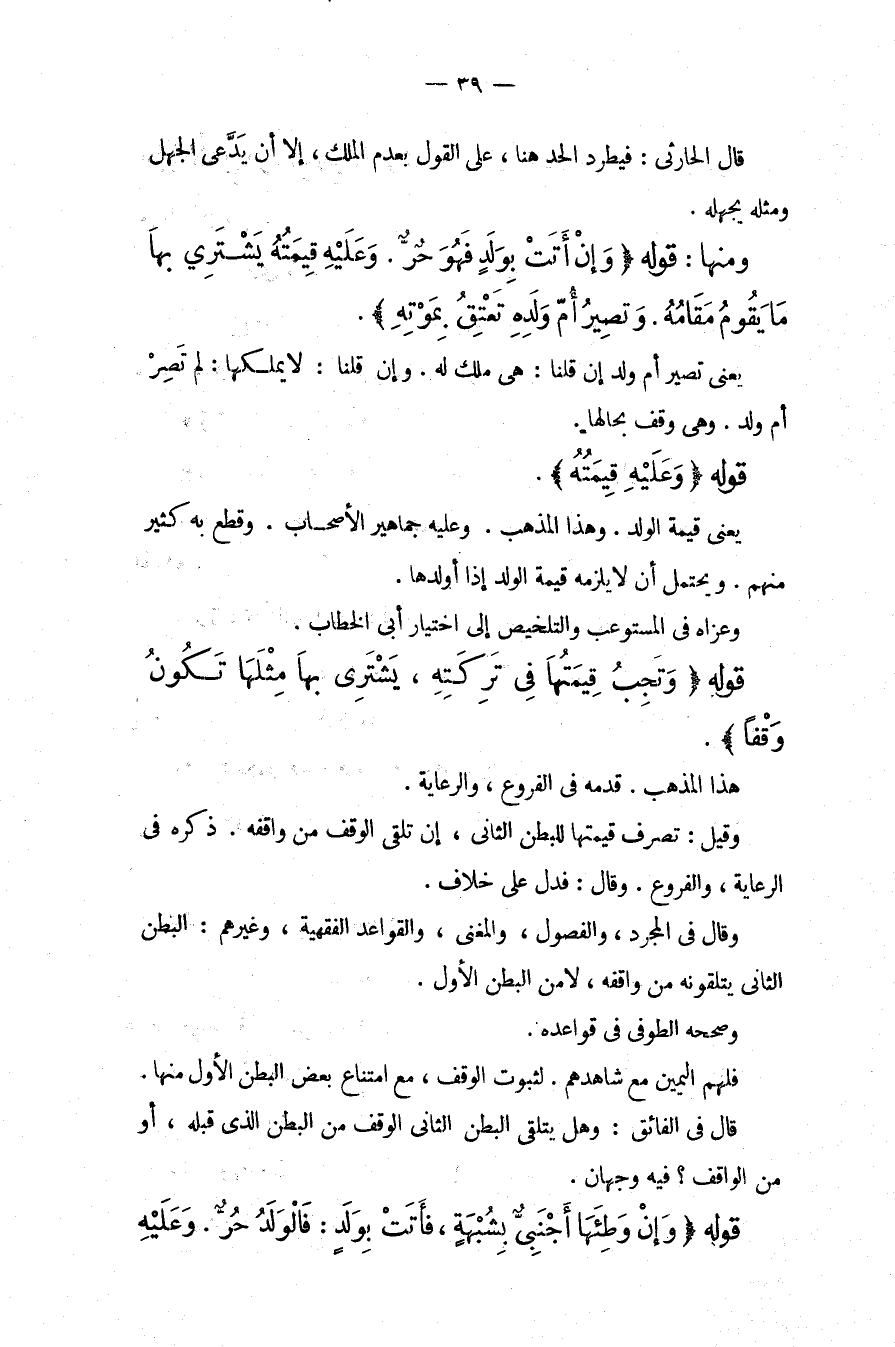 — ٣٩ —
قال الحارثى : فيطرد الحد هنا ، على القول بعدم الملك ، إلا أن يَدَّعى الجهل
ومثله يجهله .
ومنها : قوله ﴿ وَإِنْ أَتَتْ بِوَلَدٍ فَهُوَ حُرٌّ . وَعَلَيْهِ قِيمَتُهُ يَشْتَرِي بهاَ
مَا يَقُومُ مَقَامُهُ . وَتَصِيرُ أُمَّ وَلَدِهِ تَعْتِقُ بِمَوْتِهِ ﴾ .
يعنى تصير أم ولد إن قلنا : هى ملك له . وإن قلنا : لايملكها : لم تَصِرْ
أم ولد . وهى وقف بحالها .
قوله ﴿ وَعَلَيْهِ قِيمَتُهُ ﴾ .
يعنى قيمة الولد . وهذا المذهب . وعليه جماهير الأصحاب . وقطع به كثير
منهم . ويحتمل أن لايلزمه قيمة الولد إذا أولدها .
وعزاه فى المستوعب والتلخيص إلى اختيار أبى الخطاب .
قوله ﴿ وَتَجِبُ قِيمَتُهَا فِي تَرِكَتِهِ ، يَشْتَرِى بهاَ مِثْلَهَا تَكُونُ
وَقْفاً ﴾ .
هذا المذهب . قدمه فى الفروع ، والرعاية .
وقيل : تصرف قيمتها للبطن الثانى ، إن تلقى الوقف من واقفه . ذكره فى
الرعاية ، والفروع . وقال : فدل على خلاف .
وقال فى المجرد ، والفصول ، والمغنى ، والقواعد الفقهية ، وغيرهم : البطن
الثانى يتلقونه من واقفه ، لامن البطن الأول .
وصححه الطوفى فى قواعده .
فلهم اليمين مع شاهدهم . لثبوت الوقف ، مع امتناع بعض البطن الأول منها .
قال فى الفائق : وهل يتلقى البطن الثانى الوقف من البطن الذى قبله ، أو
من الواقف ؟ فيه وجهان .
قوله ﴿ وَإِنْ وَطِئَهَا أَجْنَبِيٌّ بِشُبْهَةٍ ، فأَتَتْ بِوَلَدٍ : فَالْوَلَدُ حُرٌّ . وَعَلَيْهِ